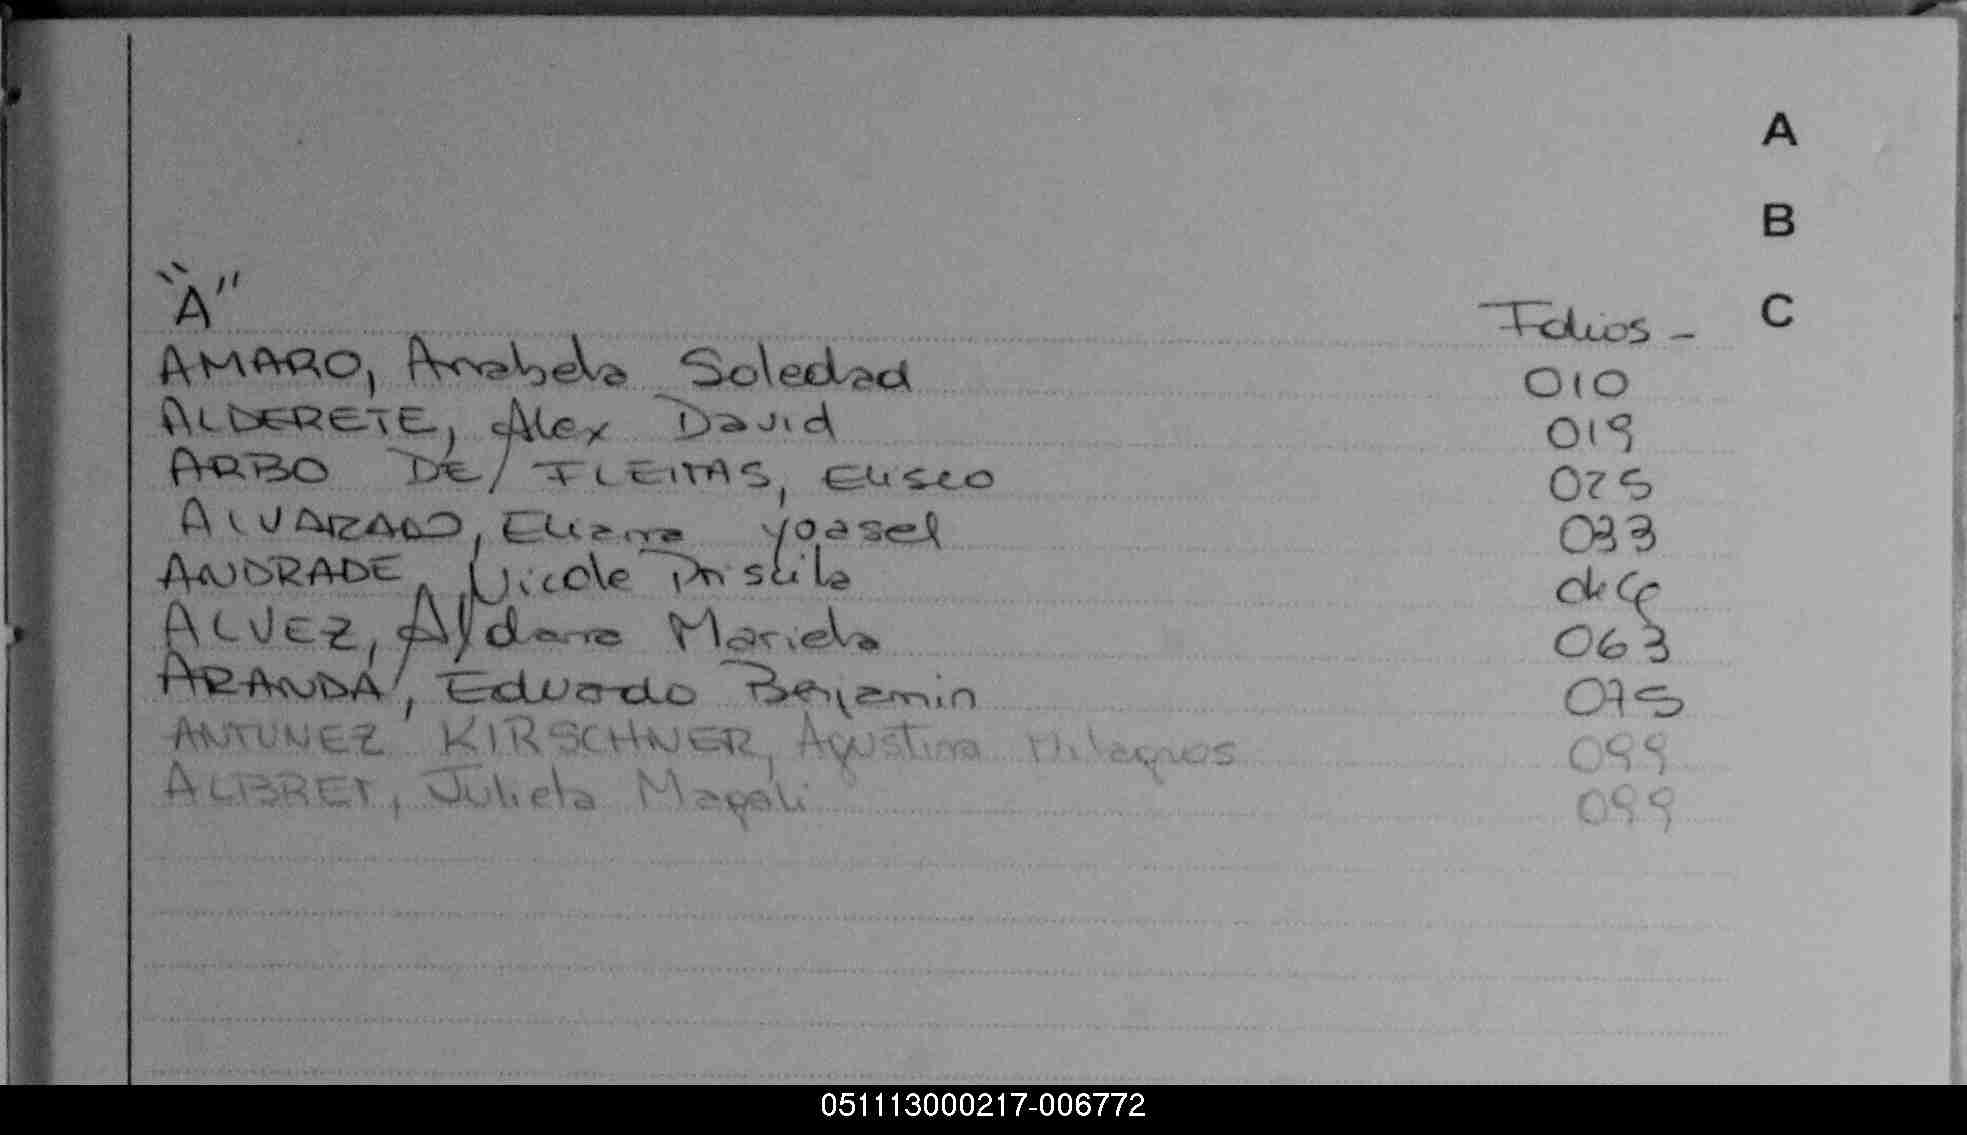 A
B
"A"
Folios - C
AMARO, Anabela Soledad 010
ALDERETE, Alex David 019
ARBO DE FLEITAS, Eliseo 025
ALVARADO, Eliana Yoasel 033
ANDRADE, Nicole Priscila
ALVEZ, Aldana Mariela 063
ARANDA, Eduardo Benjamin 075
ANTUNEZ KIRSCHNER, Agustina Milagros 099
ALBRET, Julieta Magali 099
051113000217-006772